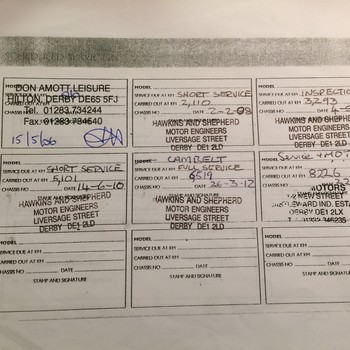 DON AMOTT LEISURE
HILTON, DERBY DE65 5FJ
Tel. 01283 734244
Fax: 01283 734540
15/5/06
MODEL SHORT SERVICE
SERVICE DUE AT KM
CARRIED OUT AT KM 2,110
CHASSIS NO DATE 2-2-08
HAWKINS AND SHEPHERD
MOTOR ENGINEERS
LIVERSAGE STREET
DERBY DE1 2LD
MODEL INSPECTION
SERVICE DUE AT KM
CARRIED OUT AT KM 3,293
CHASSIS NO
HAWKINS AND
MOTOR
LIVERSAGE
DERBY
MODEL
SERVICE DUE AT KM SHORT SERVICE
CARRIED OUT AT KM 5,101
CHASSIS NO DATE 14-6-10
HAWKINS AND SHEPHERD
MOTOR ENGINEERS
LIVERSAGE STREET
DERBY DE1 2LD
MODEL CAMBELT
SERVICE DUE AT KM FULL SERVICE
CARRIED OUT AT KM 6519
CHASSIS NO DATE 26-3-12
HAWKINS AND SHEPHERD
MOTOR ENGINEERS
LIVERSAGE STREET
DERBY DE1 2LD
MODEL Service + MOT
SERVICE DUE AT KM
CARRIED OUT AT KM 8226
CHASSIS NO
MOTORS
STREET
IND. ESTA
DERBY DE1 2LX
MODEL
SERVICE DUE AT KM
CARRIED OUT AT KM
CHASSIS NO DATE
STAMP AND SIGNATURE
MODEL
SERVICE DUE AT KM
CARRIED OUT AT KM
CHASSIS NO DATE
STAMP AND SIGNATURE
MODEL
SERVICE DUE AT KM
CARRIED OUT AT KM
CHASSIS NO
STAMP AND